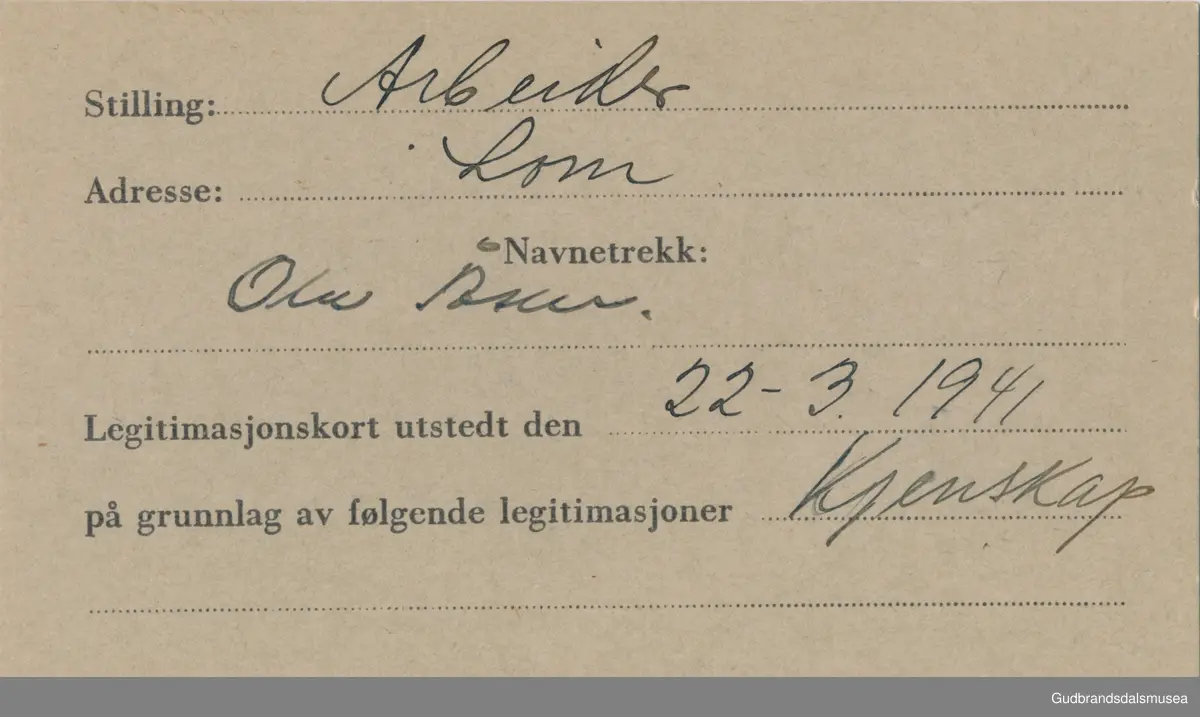 Stilling: Arbeider
Adresse: Lom
Navnetrekk:
Ola
Legitimasjonskort utstedt den 22-3.1941
på grunnlag av følgende legitimasjoner Kjenskap
Gudbrandsdalsmusea